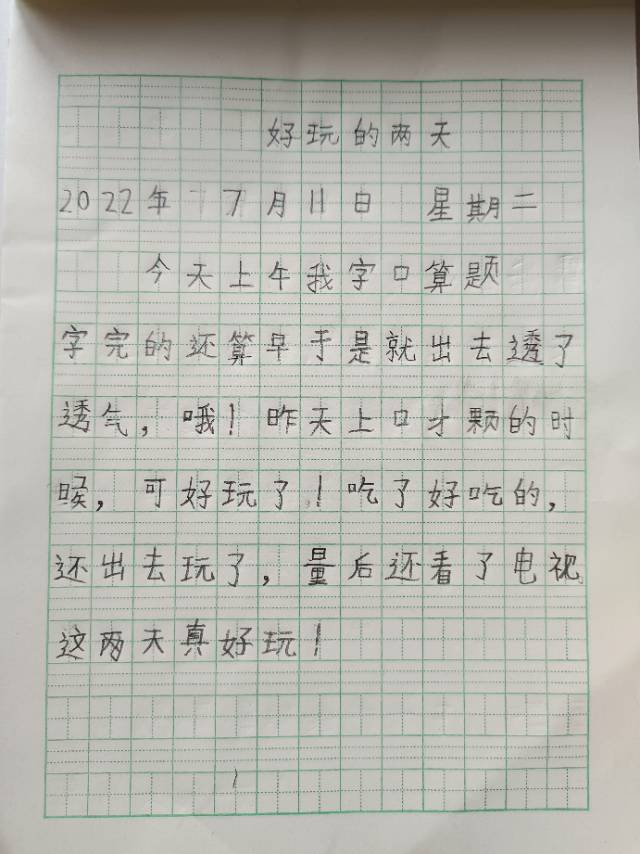 好玩的两天
2022年 7月11日 星期二
今天上午我字口算题
字完的还算早于是就出去透了
透气，哦！昨天上口才颗的时
候，可好玩了！吃了好吃的，
还出去玩了，量后还看了电视。
这两天真好玩！